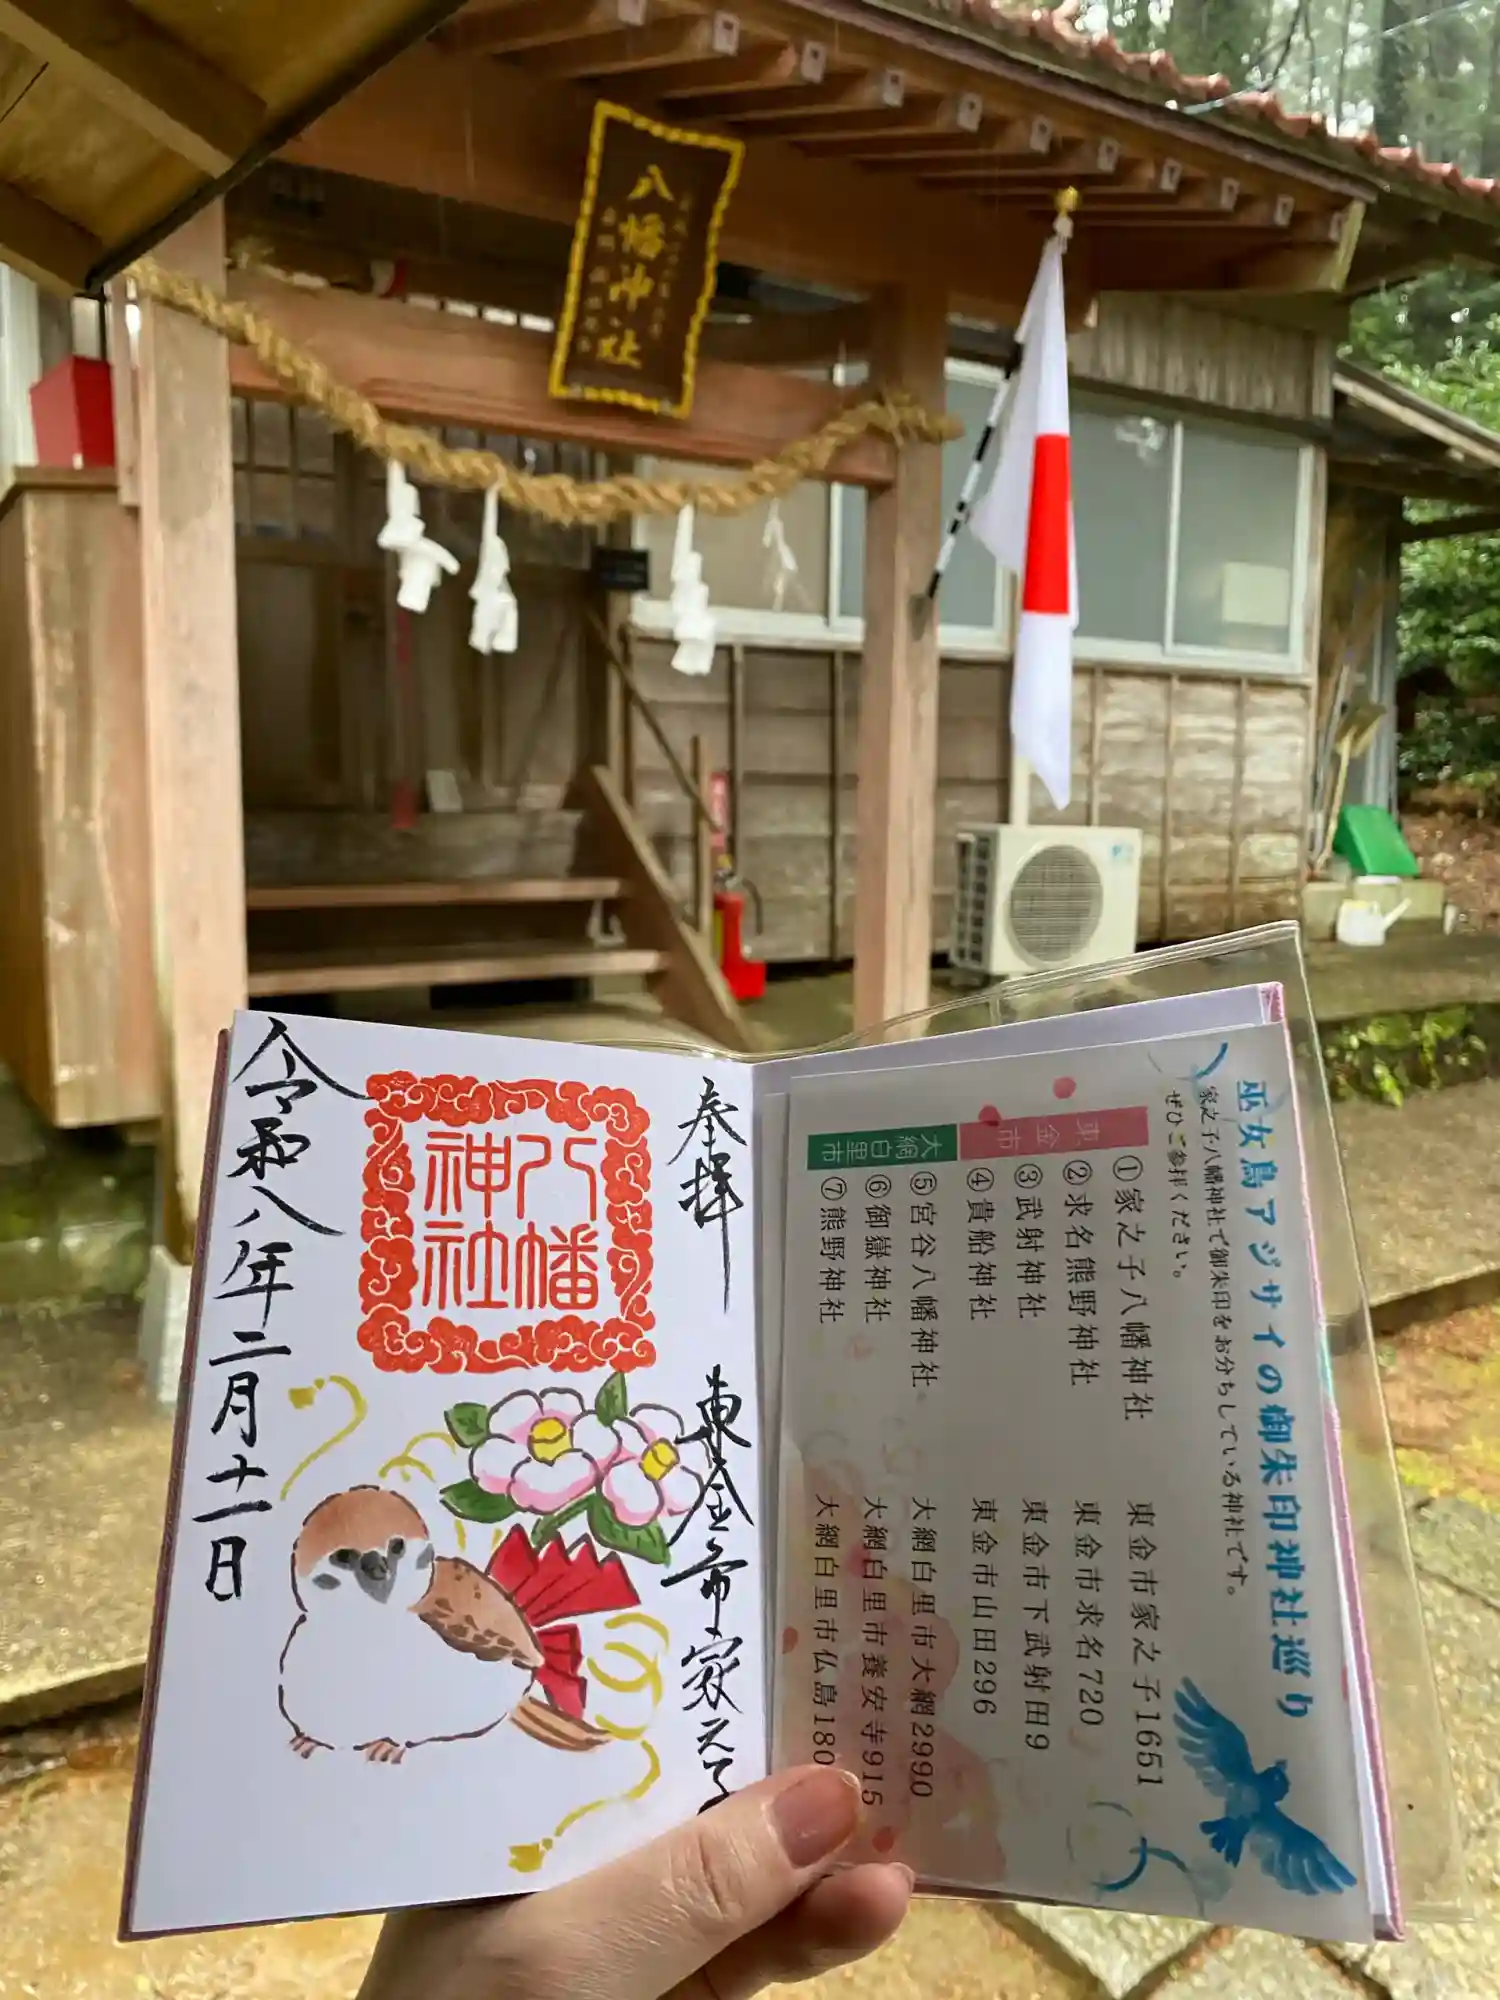 八幡神社
奉拝
東金市家之子
八幡神社
令和八年二月十一日
巫女鳥アジサイの御朱印神社巡り
家之子八幡神社で御朱印をお分ちしている神社です。
ぜひご参拝ください。
東金市
①家之子八幡神社 東金市家之子1651
②求名熊野神社 東金市求名720
③武射神社 東金市下武射田9
④貴船神社 東金市山田296
大網白里市
⑤宮谷八幡神社 大網白里市大網2990
⑥御嶽神社 大網白里市養安寺915
⑦熊野神社 大網白里市仏島180